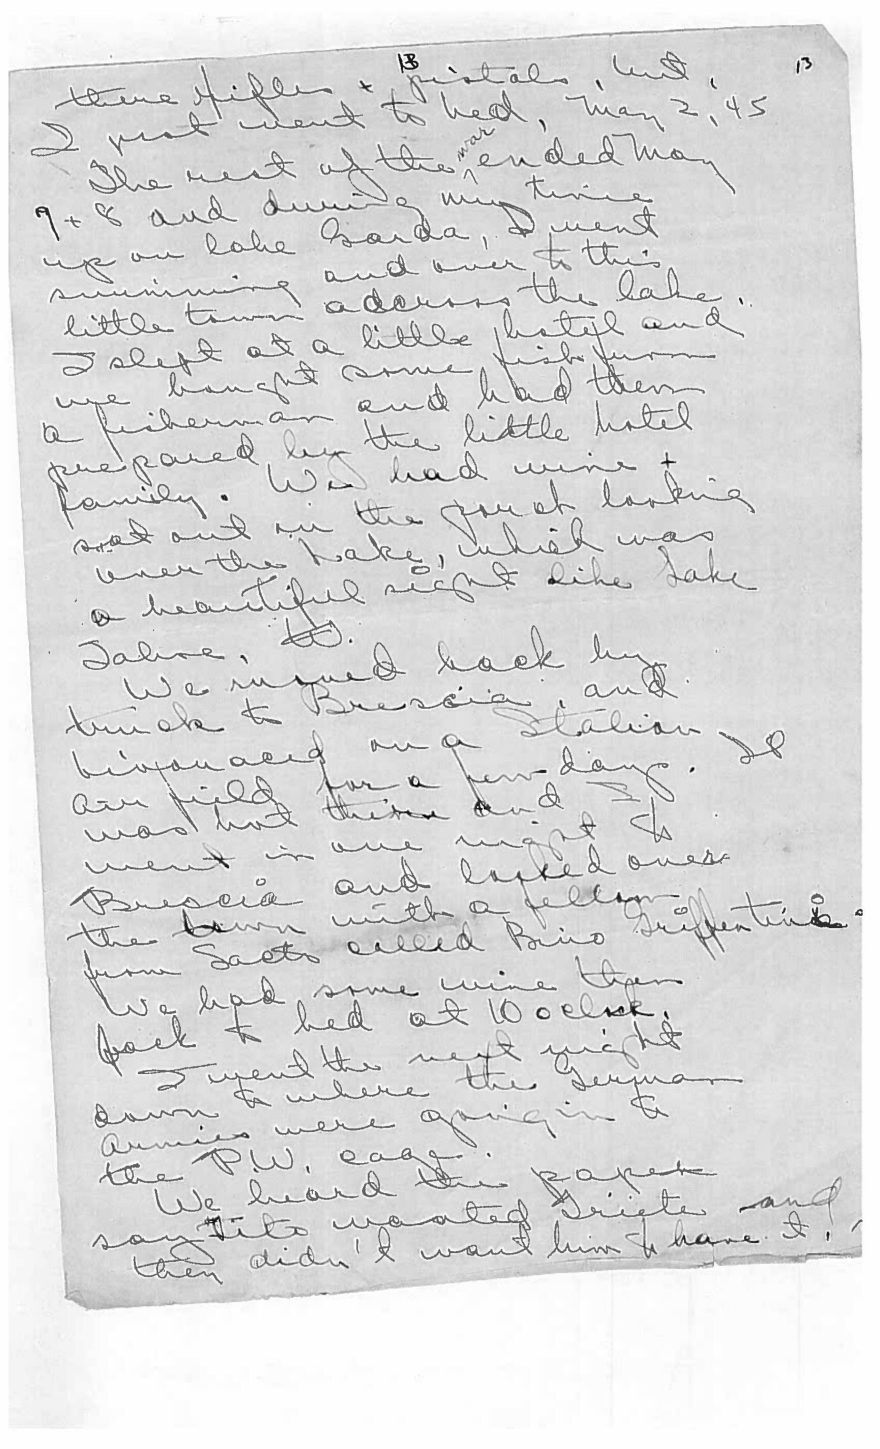 13 13
there rifles + pistols, but,
I just went to bed, May 2, 45
The rest of the war ended May
7 + 8 and during my time
up on lake Garda, I went
swimming and over to this
little town adcross the lake.
I slept at a little hotel and
we bought some fish from
a fisherman and had them
prepared by the little hotel
family. We had wine +
sat out on the porch looking
over the Lake, which was
a beautiful sight like Lake
Tahoe. W.
We moved back by
truck to Brescia, and
bivouaced on a Italian
air field for a few days. It
was hot there and I
went in one night to
Brescia and looked over
the town with a fellow
from Sacto called Bino
We had some wine then
back to bed at 10 oclock.
I went the next night
down to where the German
Armies were going in to
the P.W. cage.
We heard the paper
say Tito wanted Trieste and
they didn't want him to have it.